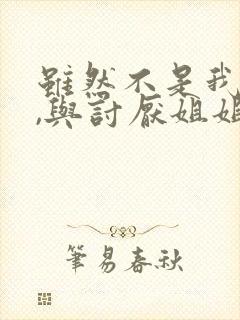 雖然不是我
,與討厭姐姐
筆易春秋